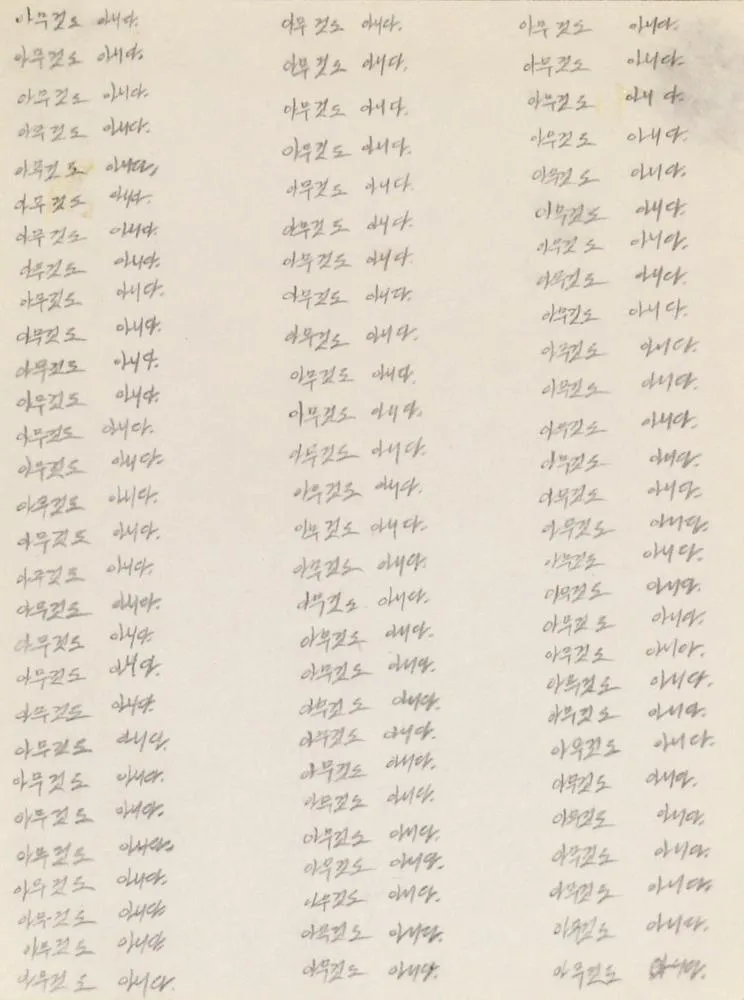 아무것도 아니다.
아무것도 아니다.
아무것도 아니다.
아무것도 아니다.
아무것도 아니다.
아무것도 아니다.
아무것도 아니다.
아무것도 아니다.
아무것도 아니다.
아무것도 아니다.
아무것도 아니다.
아무것도 아니다.
아무것도 아니다.
아무것도 아니다.
아무것도 아니다.
아무것도 아니다.
아무것도 아니다.
아무것도 아니다.
아무것도 아니다.
아무것도 아니다.
아무것도 아니다.
아무것도 아니다.
아무것도 아니다.
아무것도 아니다.
아무것도 아니다.
아무것도 아니다.
아무것도 아니다.
아무것도 아니다.
아무것도 아니다.
아무것도 아니다.
아무것도 아니다.
아무것도 아니다.
아무것도 아니다.
아무것도 아니다.
아무것도 아니다.
아무것도 아니다.
아무것도 아니다.
아무것도 아니다.
아무것도 아니다.
아무것도 아니다.
아무것도 아니다.
아무것도 아니다.
아무것도 아니다.
아무것도 아니다.
아무것도 아니다.
아무것도 아니다.
아무것도 아니다.
아무것도 아니다.
아무것도 아니다.
아무것도 아니다.
아무것도 아니다.
아무것도 아니다.
아무것도 아니다.
아무것도 아니다.
아무것도 아니다.
아무것도 아니다.
아무것도 아니다.
아무것도 아니다.
아무것도 아니다.
아무것도 아니다.
아무것도 아니다.
아무것도 아니다.
아무것도 아니다.
아무것도 아니다.
아무것도 아니다.
아무것도 아니다.
아무것도 아니다.
아무것도 아니다.
아무것도 아니다.
아무것도 아니다.
아무것도 아니다.
아무것도 아니다.
아무것도 아니다.
아무것도 아니다.
아무것도 아니다.
아무것도 아니다.
아무것도 아니다.
아무것도 아니다.
아무것도 아니다.
아무것도 아니다.
아무것도 아니다.
아무것도 아니다.
아무것도 아니다.
아무것도 아니다.